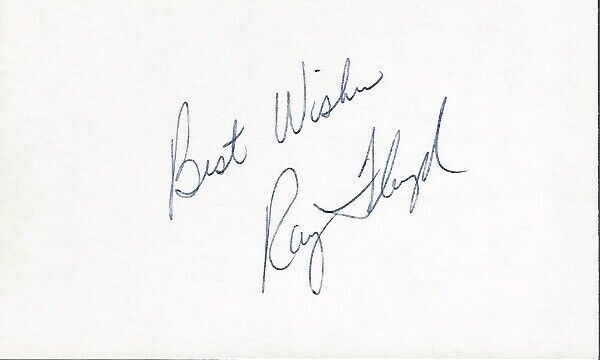 Best Wishes
Ray Floyd